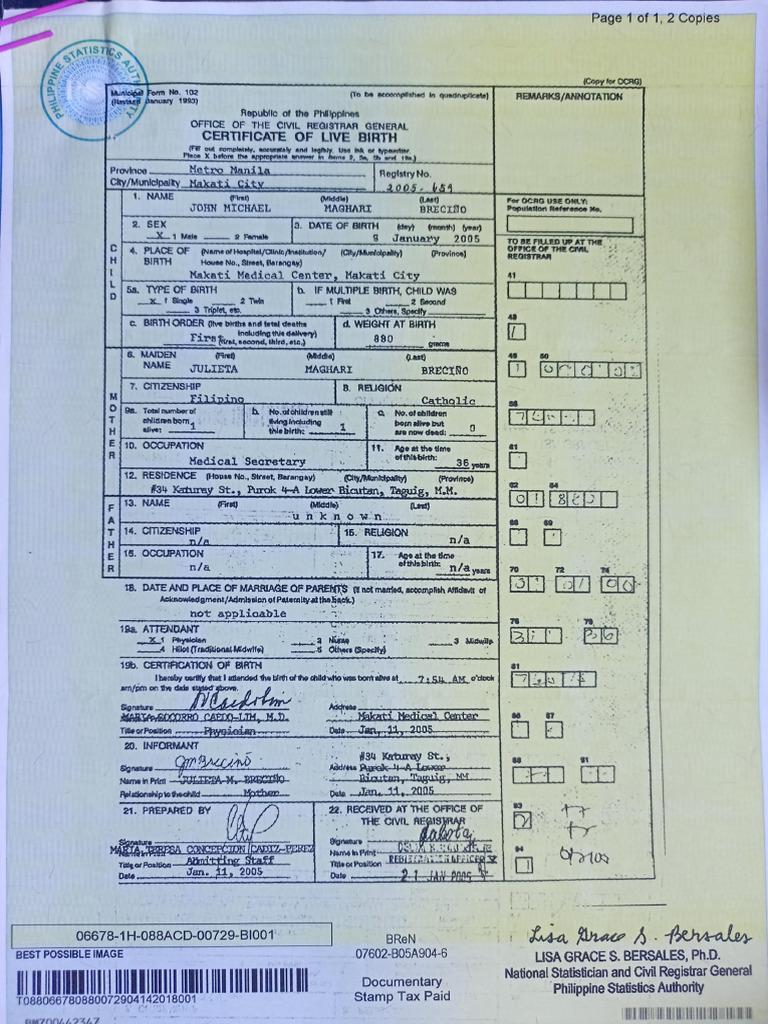 Page 1 of 1, 2 Copies
PHILIPPINE STATISTICS AUTHORITY
(Copy for OCRG)
Municipal Form No. 102
(Revised January 1993)
(To be accomplished in quadruplicate)
REMARKS/ANNOTATION
Republic of the Philippines
OFFICE OF THE CIVIL REGISTRAR GENERAL
CERTIFICATE OF LIVE BIRTH
(Fill out completely, accurately and legibly. Use ink or typewriter.
Place X before the appropriate answer in items 2, 5a, 5b and 19a.)
Province Metro Manila
Registry No.
City/Municipality Makati City
2005-659
For OCRG USE ONLY:
Population Reference No.
CHILD
1. NAME (First) (Middle) (Last)
JOHN MICHAEL MAGHARI BRECIÑO
2. SEX
X 1 Male 2 Female
3. DATE OF BIRTH (day) (month) (year)
8 January 2005
TO BE FILLED UP AT THE
OFFICE OF THE CIVIL
REGISTRAR
4. PLACE OF BIRTH (Name of Hospital/Clinic/Institution/ House No., Street, Barangay) (City/Municipality) (Province)
Makati Medical Center, Makati City
41
5a. TYPE OF BIRTH
X 1 Single 2 Twin
3 Triplet, etc.
b. IF MULTIPLE BIRTH, CHILD WAS
1 First 2 Second
3 Others, Specify
c. BIRTH ORDER (live births and fetal deaths including this delivery)
First (first, second, third, etc.)
d. WEIGHT AT BIRTH
880 grams
48
MOTHER
6. MAIDEN NAME (First) (Middle) (Last)
JULIETA MAGHARI BRECIÑO
49 50
7. CITIZENSHIP
Filipino
8. RELIGION
Catholic
9a. Total number of children born alive: 1
b. No. of children still living including this birth: 1
c. No. of children born alive but are now dead: 0
56
10. OCCUPATION
Medical Secretary
11. Age at the time of this birth: 36 years
61
12. RESIDENCE (House No., Street, Barangay) (City/Municipality) (Province)
#34 Katuray St., Purok 4-A Lower Bicutan, Taguig, M.M.
62 64
FATHER
13. NAME (First) (Middle) (Last)
unknown
14. CITIZENSHIP
n/a
15. RELIGION
n/a
68 69
16. OCCUPATION
n/a
17. Age at the time of this birth: n/a years
70 72 74
18. DATE AND PLACE OF MARRIAGE OF PARENTS (If not married, accomplish Affidavit of
Acknowledgment/Admission of Paternity at the back.)
not applicable
19a. ATTENDANT
X 1 Physician 2 Nurse 3 Midwife
4 Hilot (Traditional Midwife) 5 Others (Specify)
76 79
19b. CERTIFICATION OF BIRTH
I hereby certify that I attended the birth of the child who was born alive at 7:54 AM o'clock
am/pm on the date stated above.
81
Signature
Address
MARIA SOCORRO CAEDO-LIM, M.D.
Makati Medical Center
Title or Position Physician
Date Jan. 11, 2005
86 87
20. INFORMANT
Signature JMBreciño
Name in Print JULIETA M. BRECIÑO
Relationship to the child Mother
Address #34 Katuray St.,
Purok 4-A Lower
Bicutan, Taguig, MM
Date Jan. 11, 2005
88 91
21. PREPARED BY
Signature
MARIA TERESA CONCEPCION CADIZ-PEREZ
Name in Print
Title or Position Admitting Staff
Date Jan. 11, 2005
22. RECEIVED AT THE OFFICE OF
THE CIVIL REGISTRAR
Signature
Name in Print
Title or Position REGISTRATION OFFICER
Date 21 JAN 2005
93
94
06678-1H-088ACD-00729-BI001
BEST POSSIBLE IMAGE
T088066780880072904142018001
BReN
07602-B05A904-6
Documentary
Stamp Tax Paid
Lisa Grace S. Bersales
LISA GRACE S. BERSALES, Ph.D.
National Statistician and Civil Registrar General
Philippine Statistics Authority